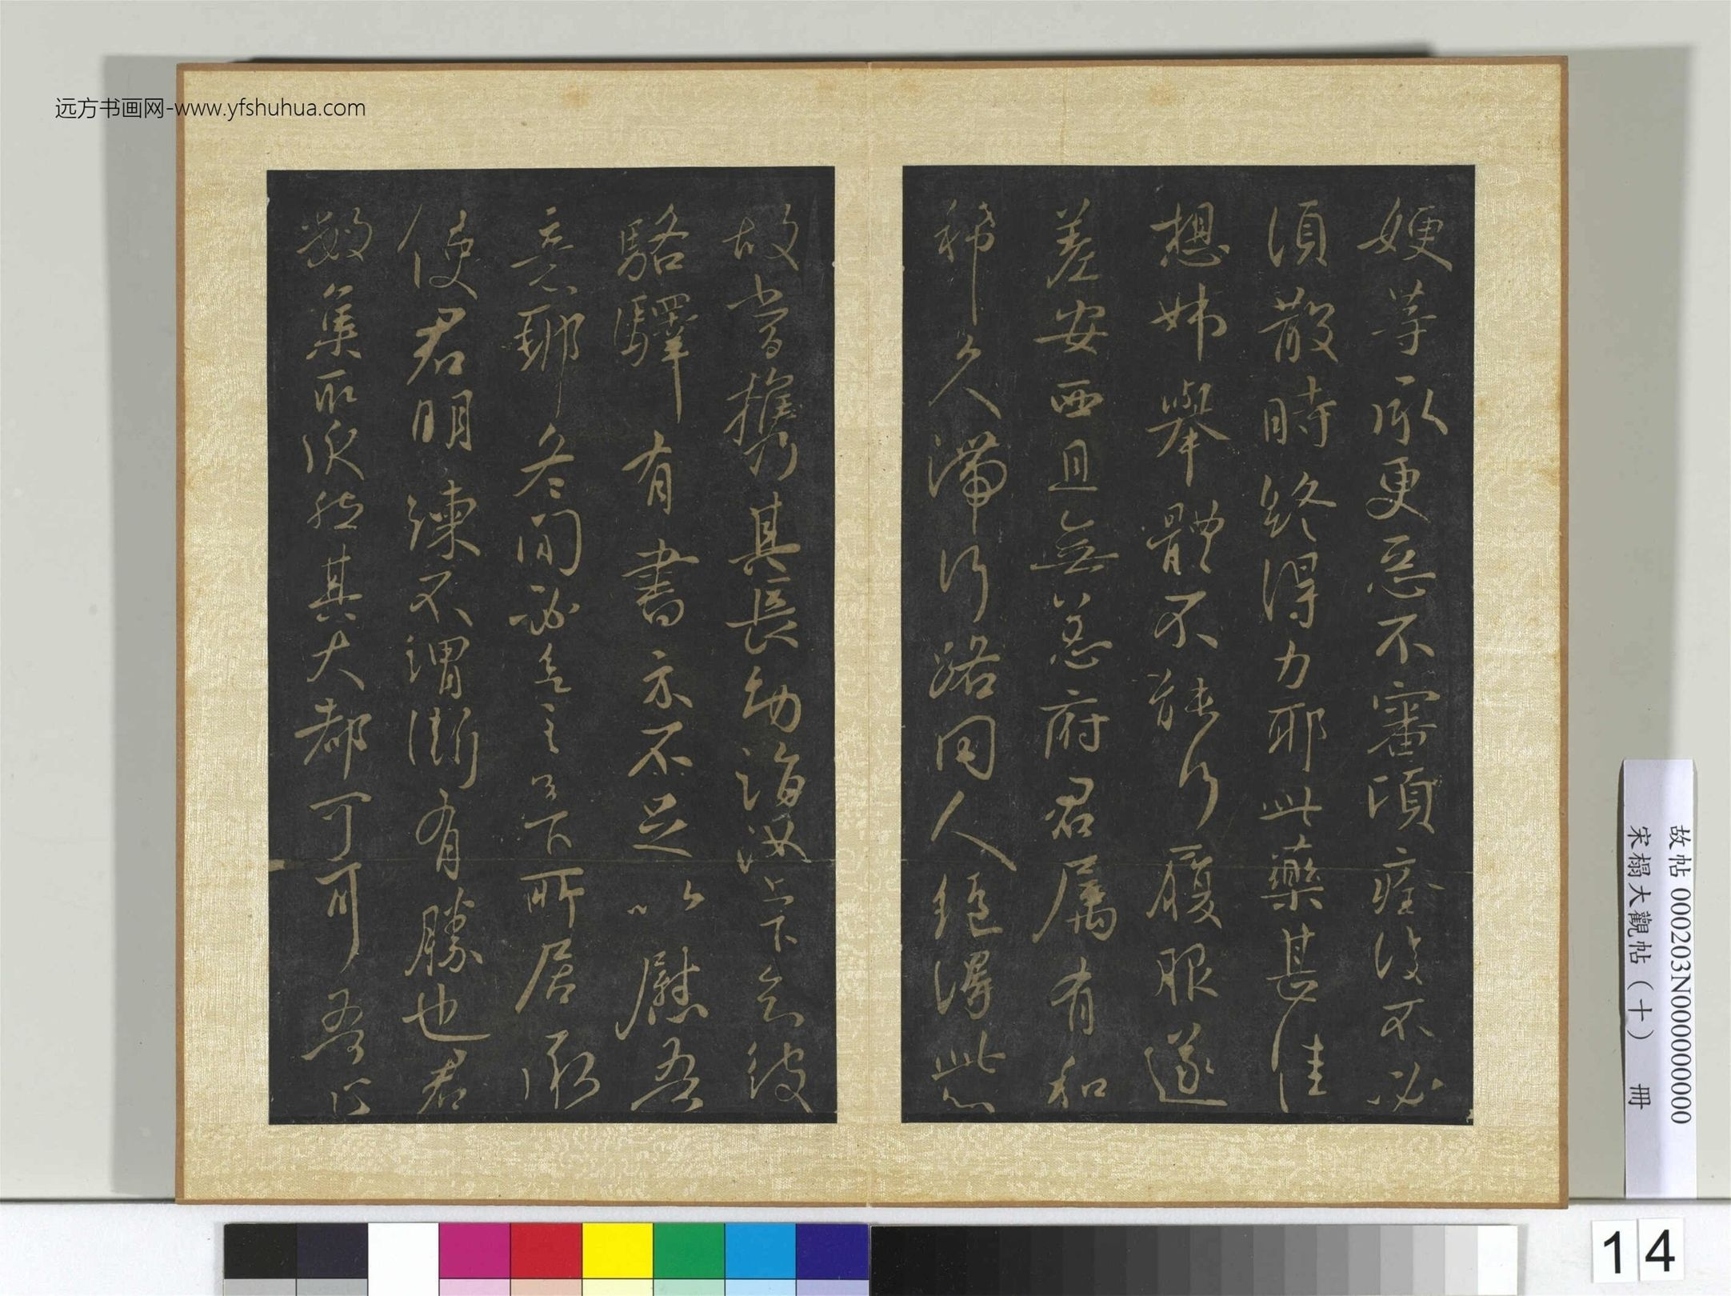 远方书画网-www.yfshuhua.com
㛐等承更惡不審須痊復不必
須散時終得力耶此藥甚佳
想姊舉體不能行履服遂
差安西且無恙府君屬有和
稀久滯行路同人絕得此
故當攜其長幼詣汝上下知彼
駱驛有書示不足以慰吾
意耶冬間必之所居承
使君明練不謂漸有勝也君
數集其大都可耳吾
故帖 000203N000000000
宋榻大觀帖（十） 冊
14